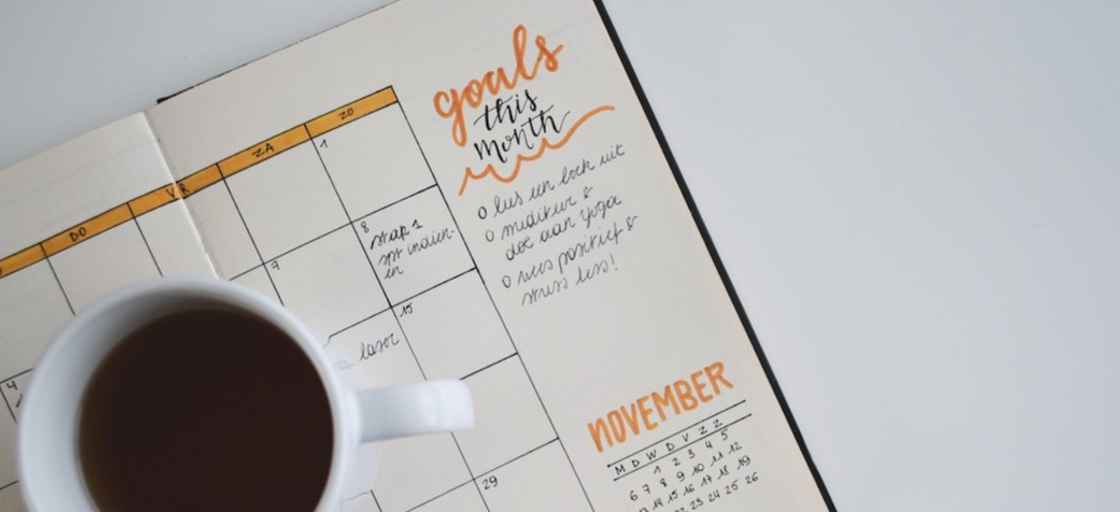 goals
this
month
o lees een boek uit
o mediteer &
doe aan yoga
o wees positief &
stress less!
DO VR ZA ZO
1
8
stap 1
indien-
en
9
15
laser
4
29
NOVEMBER
M D W D V Z Z
1 2 3 4 5
6 7 8 9 10 11 12
14 15 16 17 18 19
22 23 24 25 26